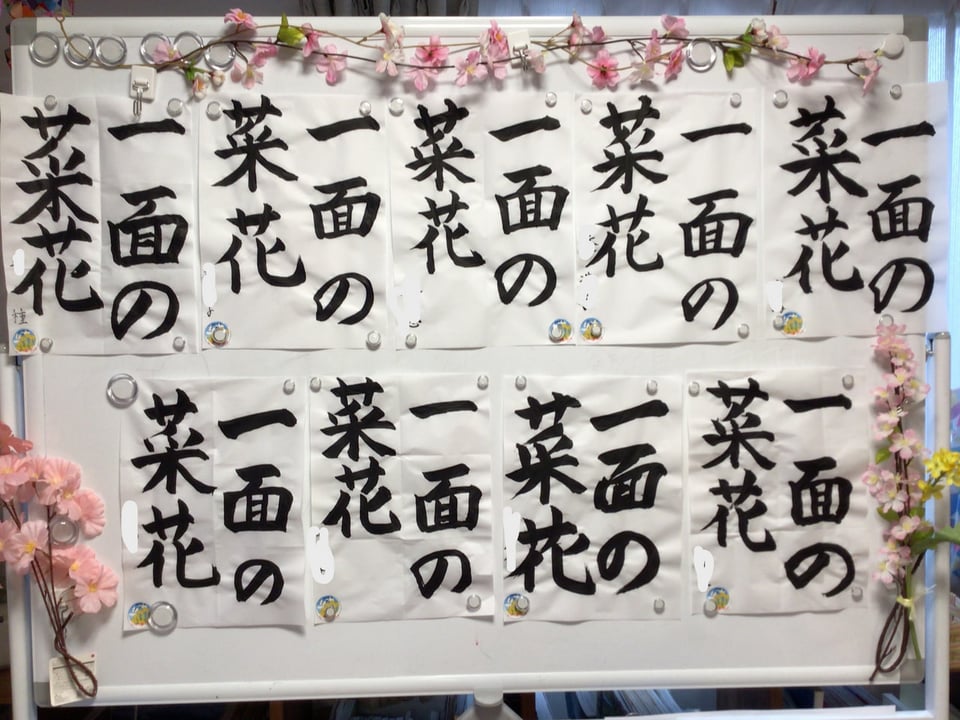 一面の
菜花
一面の
菜花
一面の
菜花
一面の
菜花
一面の
菜花
一面の
菜花
一面の
菜花
一面の
菜花
一面の
菜花